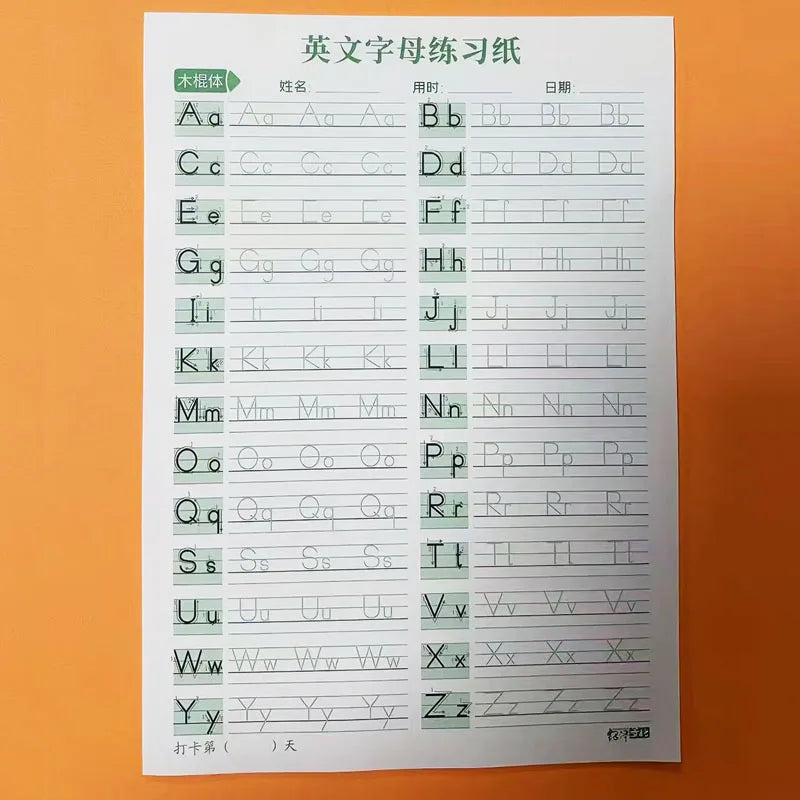 英文字母练习纸
木棍体
姓名: 用时: 日期:
Aa Aa Aa Aa Bb Bb Bb Bb
Cc Cc Cc Cc Dd Dd Dd Dd
Ee Ee Ee Ee Ff Ff Ff Ff
Gg Gg Gg Gg Hh Hh Hh Hh
Ii Ii Ii Ii Jj Jj Jj Jj
Kk Kk Kk Kk Ll Ll Ll Ll
Mm Mm Mm Mm Nn Nn Nn Nn
Oo Oo Oo Oo Pp Pp Pp Pp
Qq Qq Qq Qq Rr Rr Rr Rr
Ss Ss Ss Ss Tt Tt Tt Tt
Uu Uu Uu Uu Vv Vv Vv Vv
Ww Ww Ww Ww Xx Xx Xx Xx
Yy Yy Yy Yy Zz Zz Zz Zz
打卡第( )天